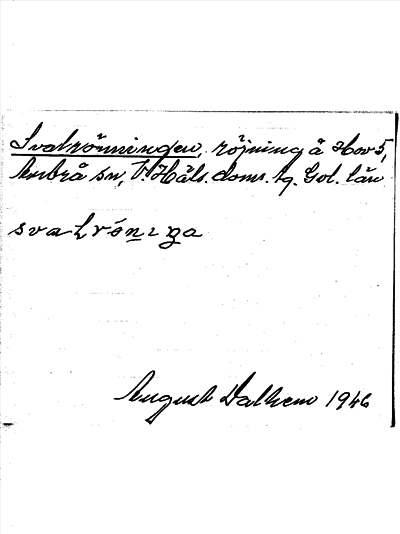 Svalrönningen, röjning å Hov 5,
Arbrå sn, V. Häls. doms. tg. Gol. län
svalrönıga
August Dalhem 1946